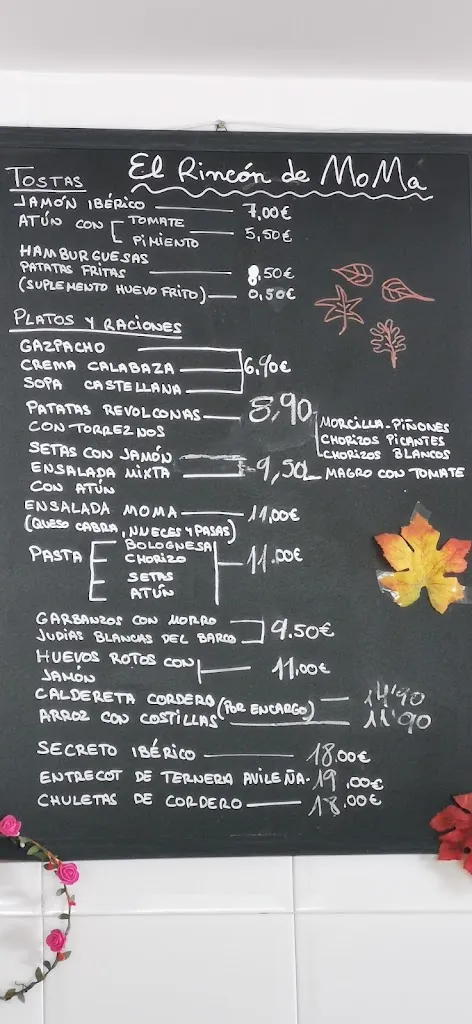 El Rincón de MoMa
TOSTAS
JAMÓN IBÉRICO 7,00€
ATÚN CON TOMATE
PIMIENTO 5,50€
HAMBURGUESAS
PATATAS FRITAS 8,50€
(SUPLEMENTO HUEVO FRITO) 0,50€
PLATOS Y RACIONES
GAZPACHO
CREMA CALABAZA 6,90€
SOPA CASTELLANA
PATATAS REVOLCONAS 8,90
CON TORREZNOS
MORCILLA-PIÑONES
CHORIZOS PICANTES
CHORIZOS BLANCOS
SETAS CON JAMÓN
ENSALADA MIXTA 9,50 MAGRO CON TOMATE
CON ATÚN
ENSALADA MOMA 11,00€
(QUESO CABRA, NUECES Y PASAS)
PASTA BOLOGNESA
CHORIZO 11.00€
SETAS
ATÚN
GARBANZOS CON MORRO
JUDIAS BLANCAS DEL BARCO 9.50€
HUEVOS ROTOS CON
JAMÓN 11,00€
CALDERETA CORDERO (POR ENCARGO) 14'90
ARROZ CON COSTILLAS 11'90
SECRETO IBÉRICO 18.00€
ENTRECOT DE TERNERA AVILEÑA 19,00€
CHULETAS DE CORDERO 18.00€